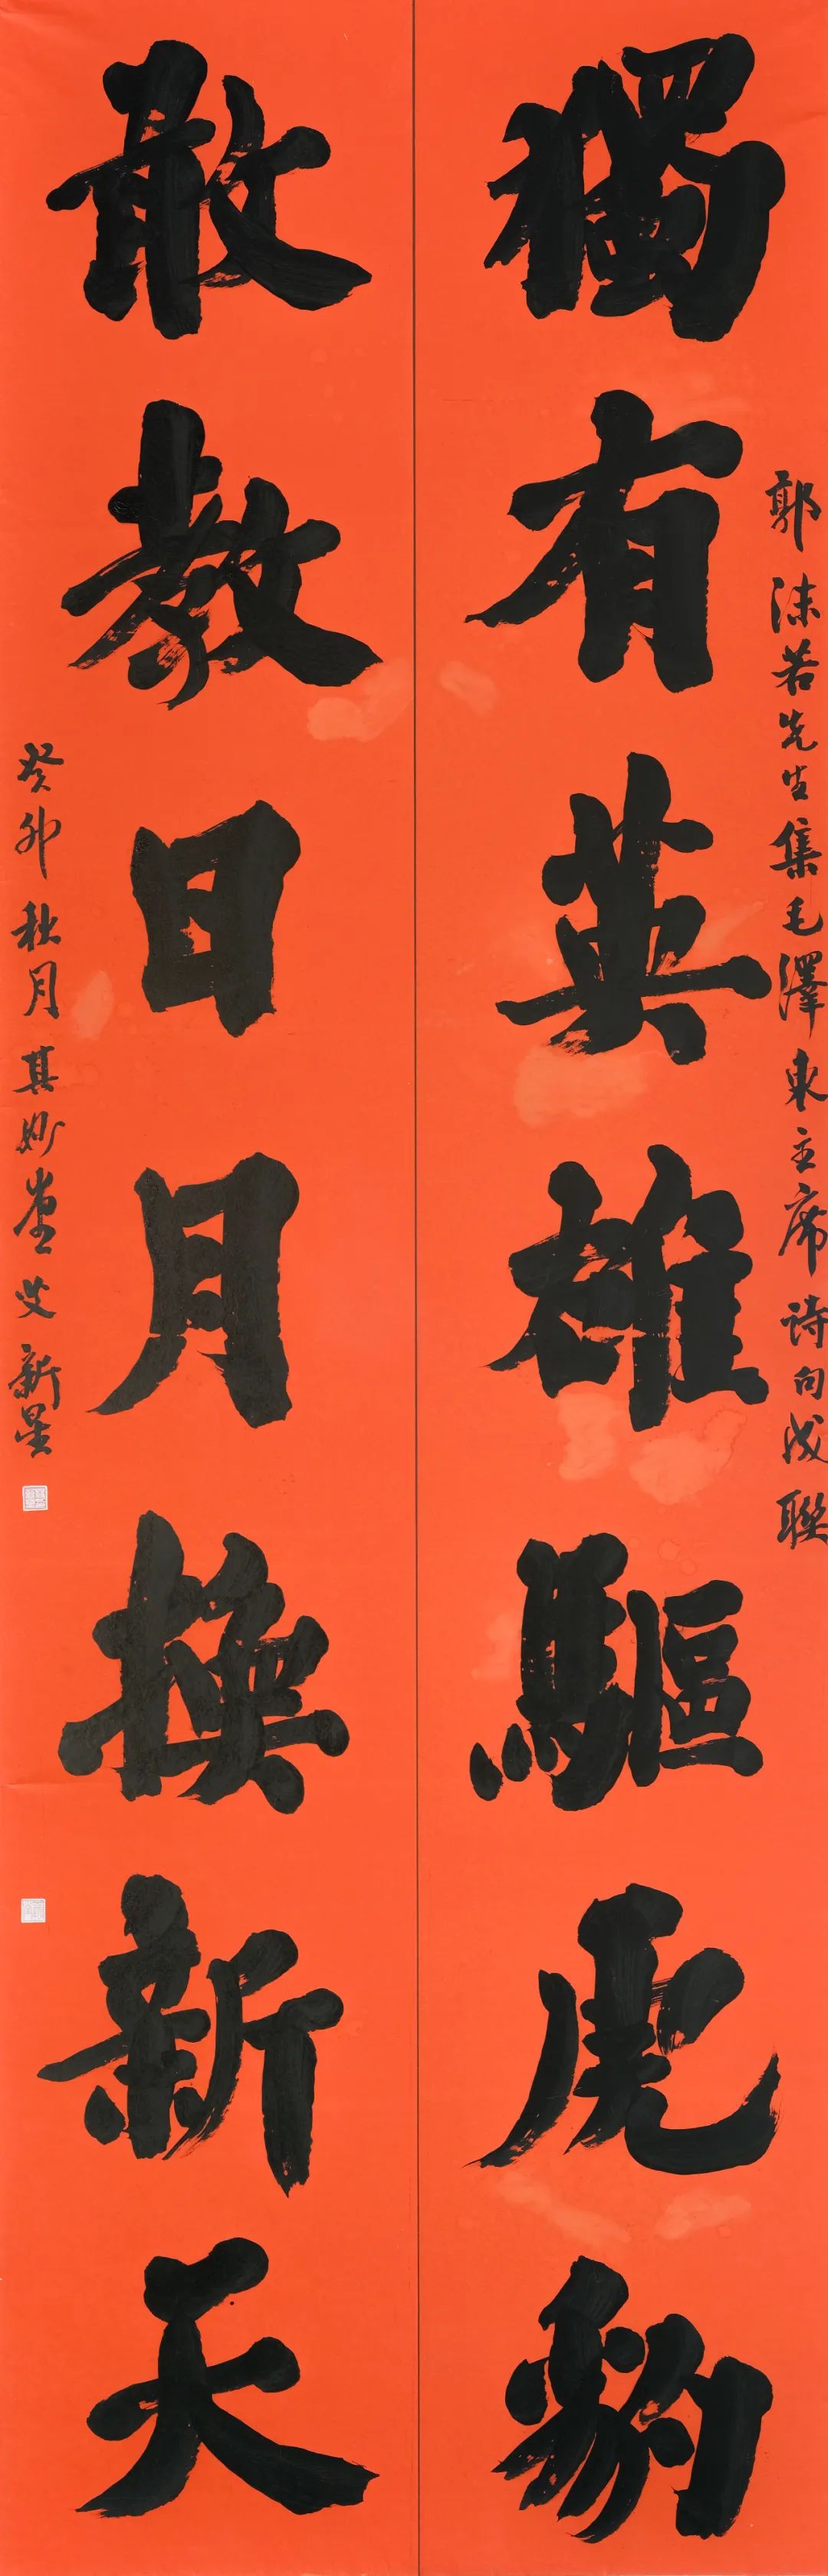 郭沫若先生集毛澤東主席诗句成聯
獨有英雄驅虎豹
敢教日月換新天
癸卯秋月其妙堂艾新星